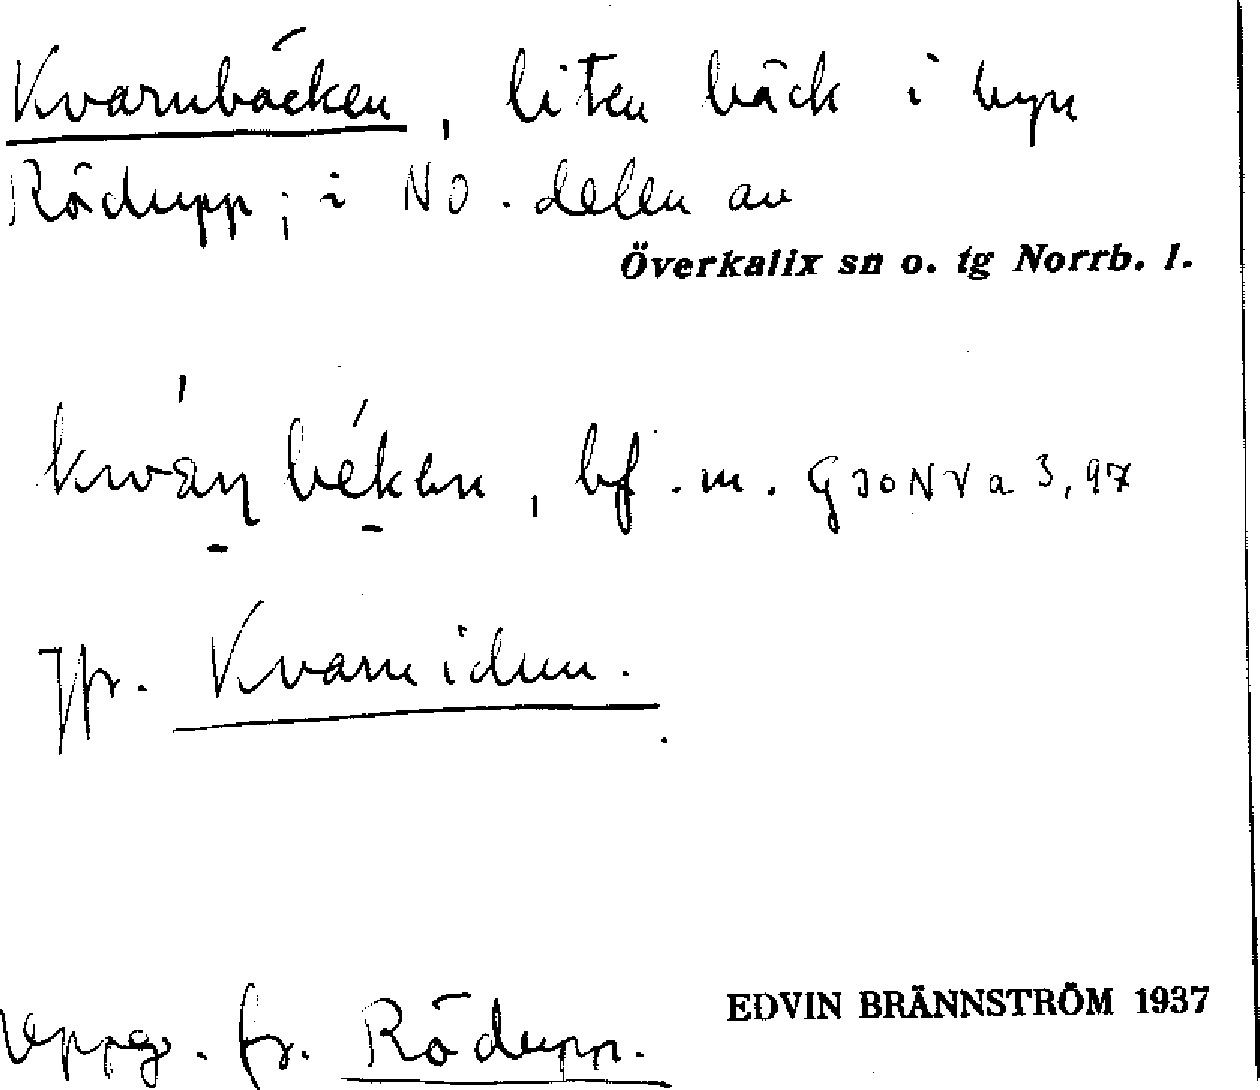 Kvarnbäcken, liten bäck i byn
Rödupp; i NO. delen av
Överkalix sn o. tg Norrb. l.
bf. m. GJoNVa 3,97
Jfr. Kvarnidun.
Uppg. fr. Rödupp.
EDVIN BRÄNNSTRÖM 1937